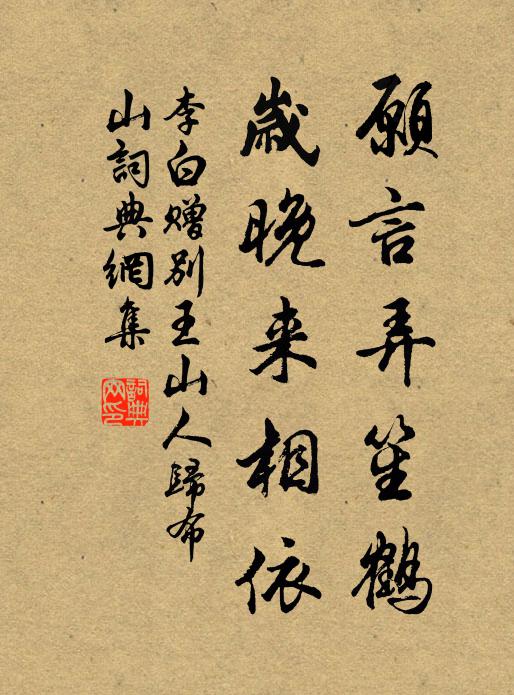 願言弄笙鶴
歲晚来相依
李白贈别王山人歸布
山詞典網集
詞典
网印